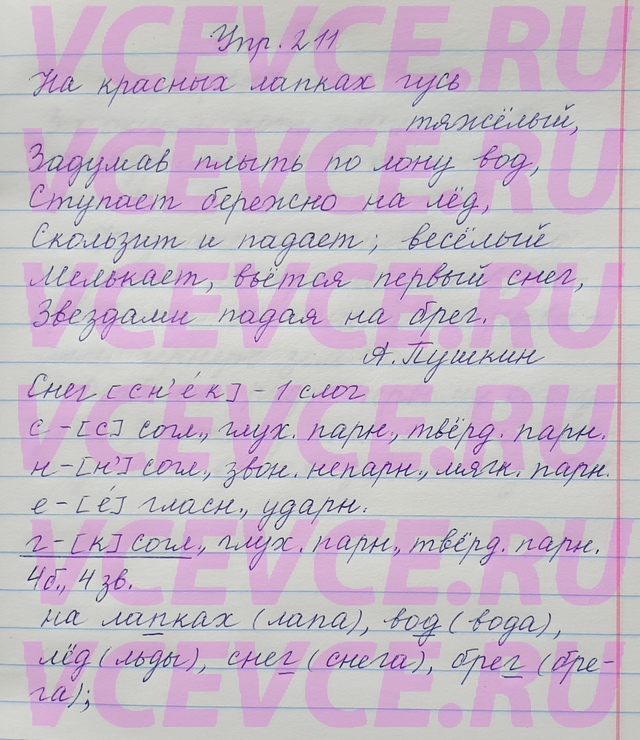 Упр. 211
На красных лапках гусь
тяжёлый,
Задумав плыть по лону вод,
Ступает бережно на лёд,
Скользит и падает; весёлый
Мелькает, вьётся первый снег,
Звездами падая на брег.
А. Пушкин
Снег [сн'éк] - 1 слог
с - [с] согл., глух. парн., твёрд. парн.
н - [н'] согл., звон. непарн., мягк. парн.
е - [é] гласн., ударн.
г - [к] согл., глух. парн., твёрд. парн.
4б., 4 зв.
на лапках (лапа), вод (вода),
лёд (льды), снег (снега), брег (бре-
га);
VCEVCE.RU
VCEVCE.RU
VCEVCE.RU
VCEVCE.RU
VCEVCE.RU
VCEVCE.RU